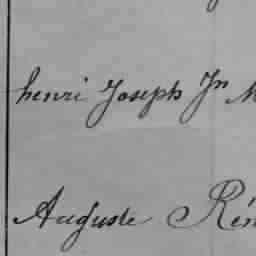 henri Joseph Jn
Auguste Rén